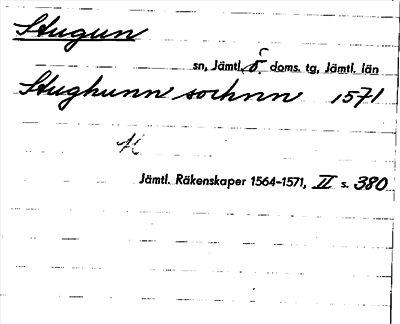 Stugun
sn, Jämtl. ö. doms. tg, Jämtl. län
Stughunn sochnn 1571
Jämtl. Räkenskaper 1564-1571, II s. 380